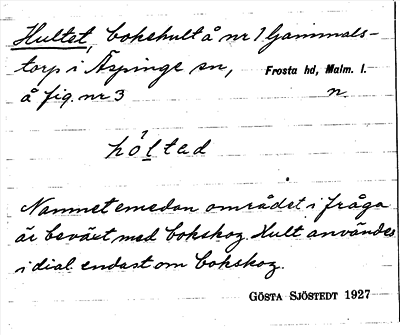 Hultet, bokehult å nr 1 Gammals-
torp i Äspinge sn, Frosta hd, Malm. l.
å fig. nr 3 n
hóltad
Namnet emedan området i fråga
är beväxt med bokskog. Hult användes
i dial. endast om bokskog.
GÖSTA SJÖSTEDT 1927